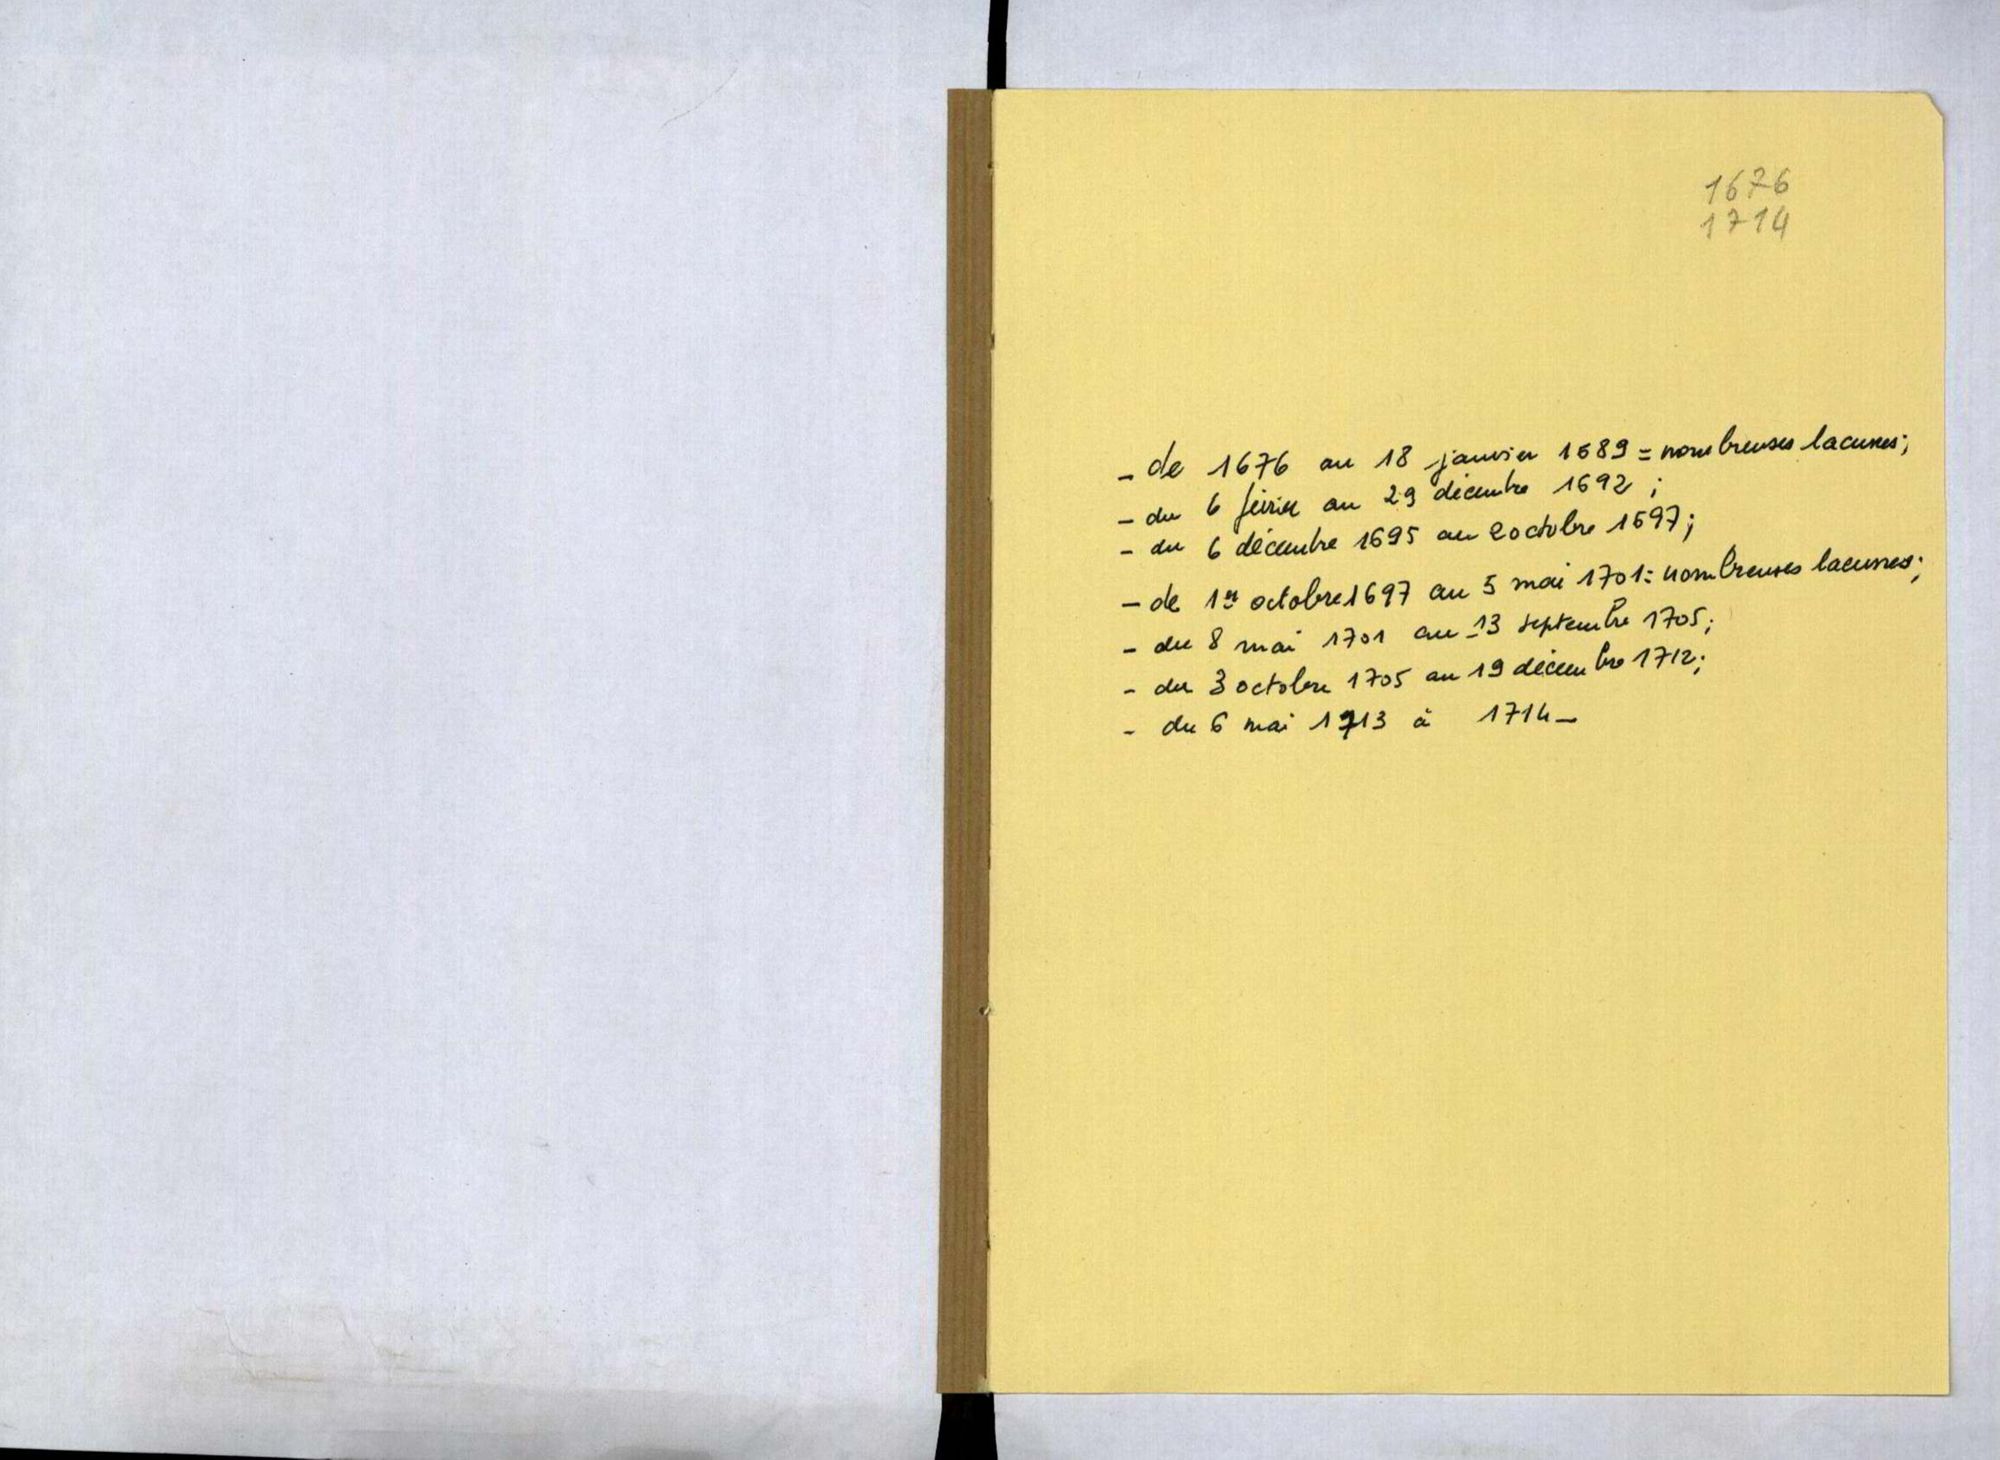 1676
1714
- de 1676 au 18 janvier 1689 = nombreuses lacunes;
- du 6 février au 29 décembre 1692 ;
- du 6 décembre 1695 au 2 octobre 1697;
- de 1er octobre 1697 au 5 mai 1701: nombreuses lacunes;
- du 8 mai 1701 au 13 septembre 1705;
- du 3 octobre 1705 au 19 décembre 1712;
- du 6 mai 1713 à 1714 -